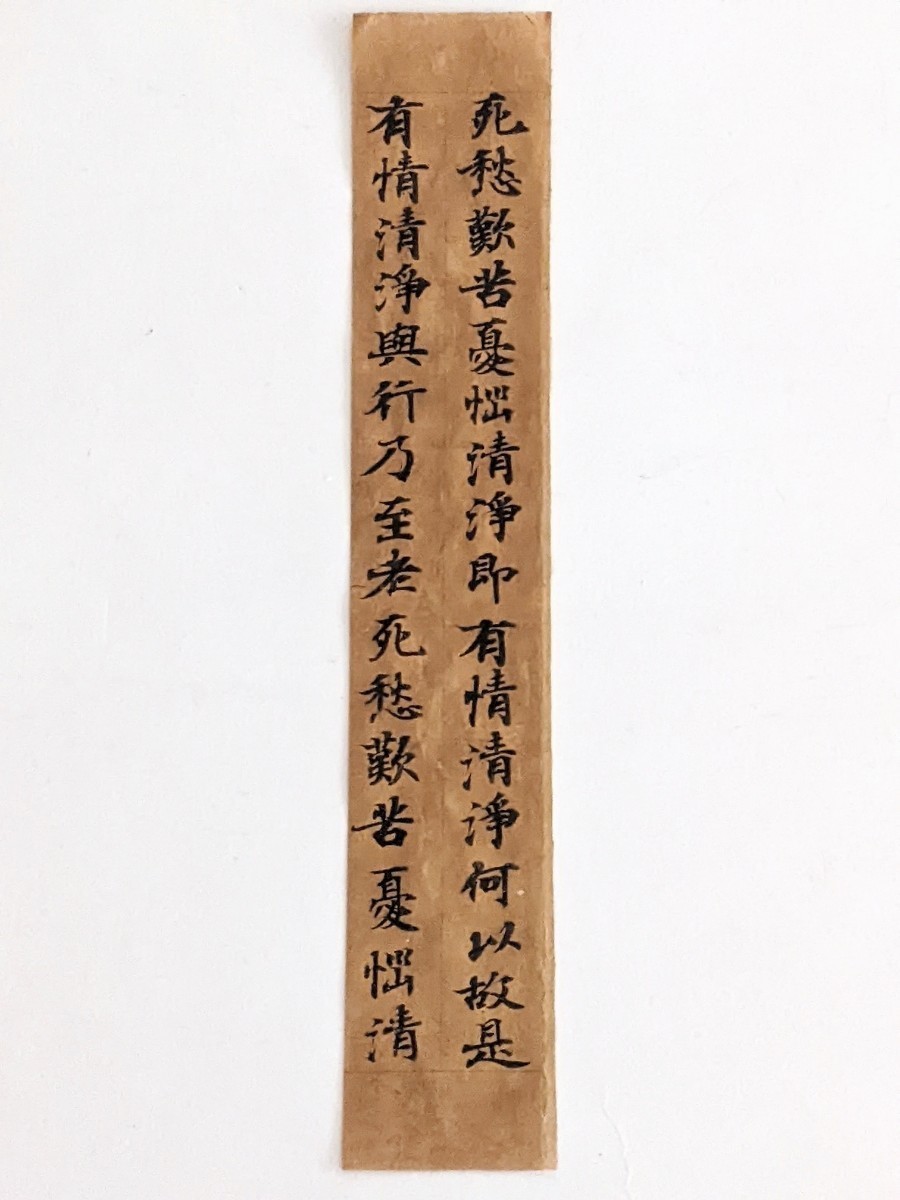 死愁歎苦憂惱清淨即有情清淨何以故是
有情清淨與行乃至老死愁歎苦憂惱清